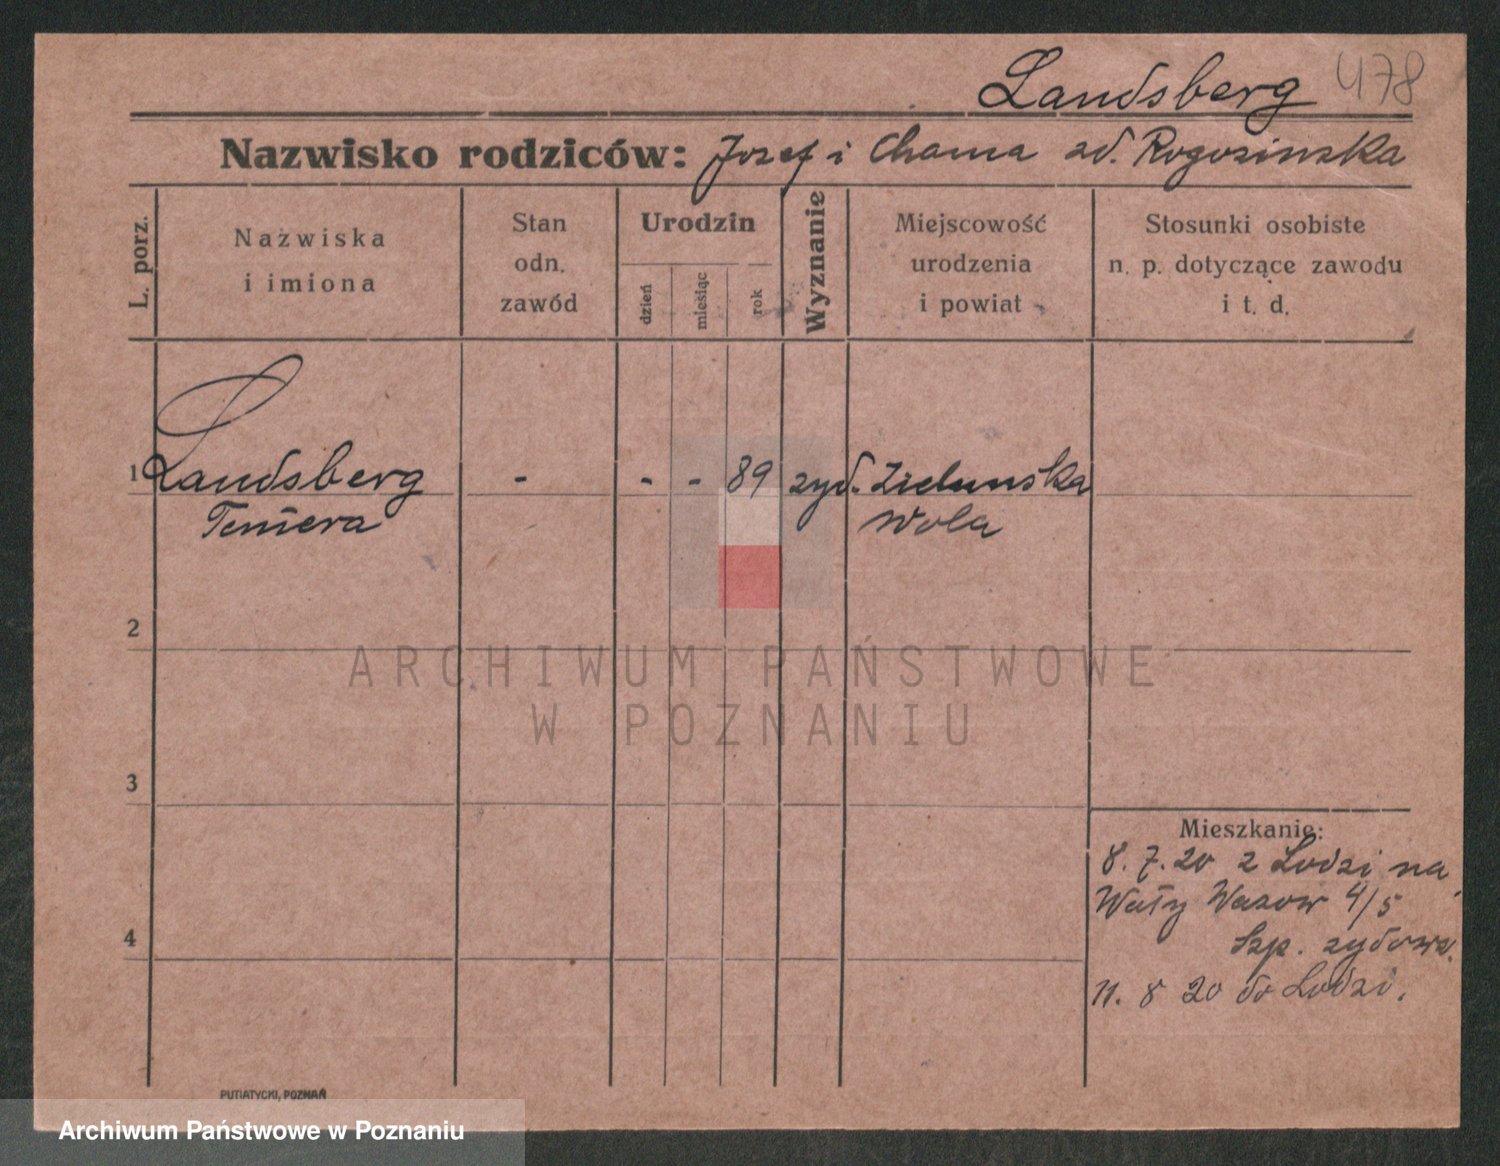 Landsberg 478
Nazwisko rodziców: Josef i Chama zd. Rogozinska
L. porz.
Nazwiska
i imiona
Stan
odn.
zawód
Urodzin
dzień
miesiąc
rok
Wyznanie
Miejscowość
urodzenia
i powiat
Stosunki osobiste
n. p. dotyczące zawodu
i t. d.
1 Landsberg - - - 89 zyd. Zielunska
Temera Wola
2
3
4
Mieszkanie:
8. 7. 20 z Lodzi na
Wały Wazow 4/5
Szp. zydowr.
11. 8 20 do Lodzi.
PUTIATYCKI, POZNAŃ
ARCHIWUM PAŃSTWOWE
W POZNANIU
Archiwum Państwowe w Poznaniu